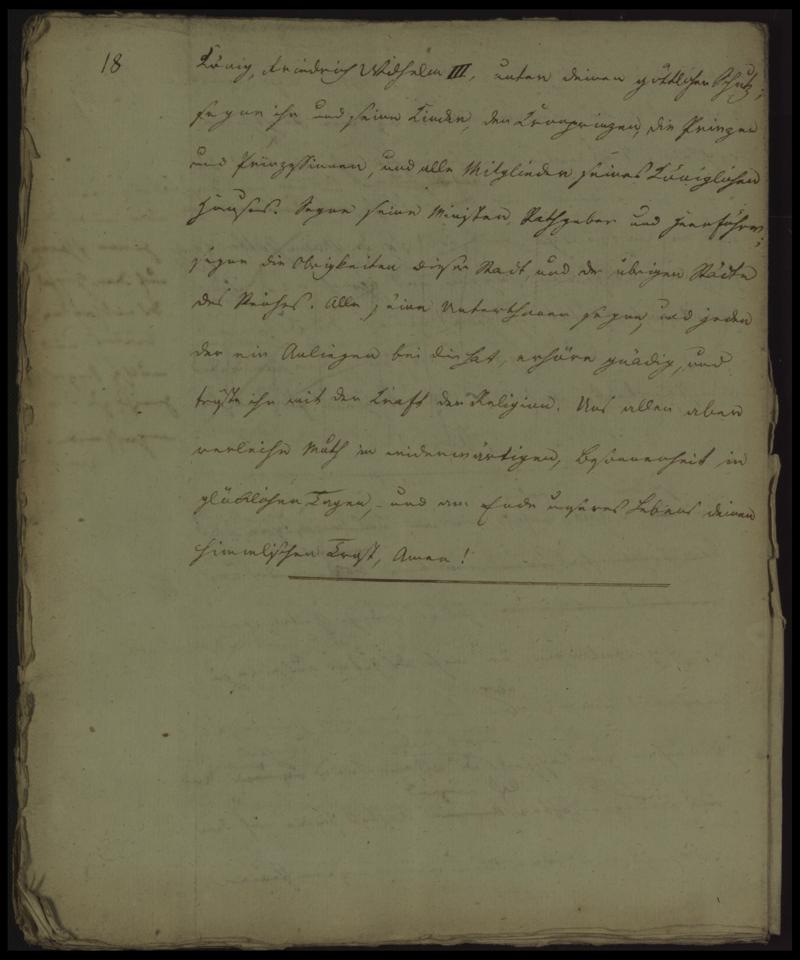 18
König, Friedrich Wilhelm III, unter deinen göttlichen Schutz;
segne ihn und seine Kinder, den Kronprinzen, die Prinzen
und Prinzessinnen, und alle Mitglieder seines Königlichen
Hauses. Segne seine Minister, Rathgeber und Heerführer;
segne die Obrigkeiten dieser Stadt, und der übrigen Städte
des Reiches. Alle seine Unterthanen segne, und jeden
der ein Anliegen bei dir hat, erhöre gnädig, und
tröste ihn mit der Kraft der Religion. Uns allen aber
verleihe Muth in widerwärtigen, Besonnenheit in
glücklichen Tagen, und am Ende unseres Lebens deinen
himmlischen Trost, Amen!